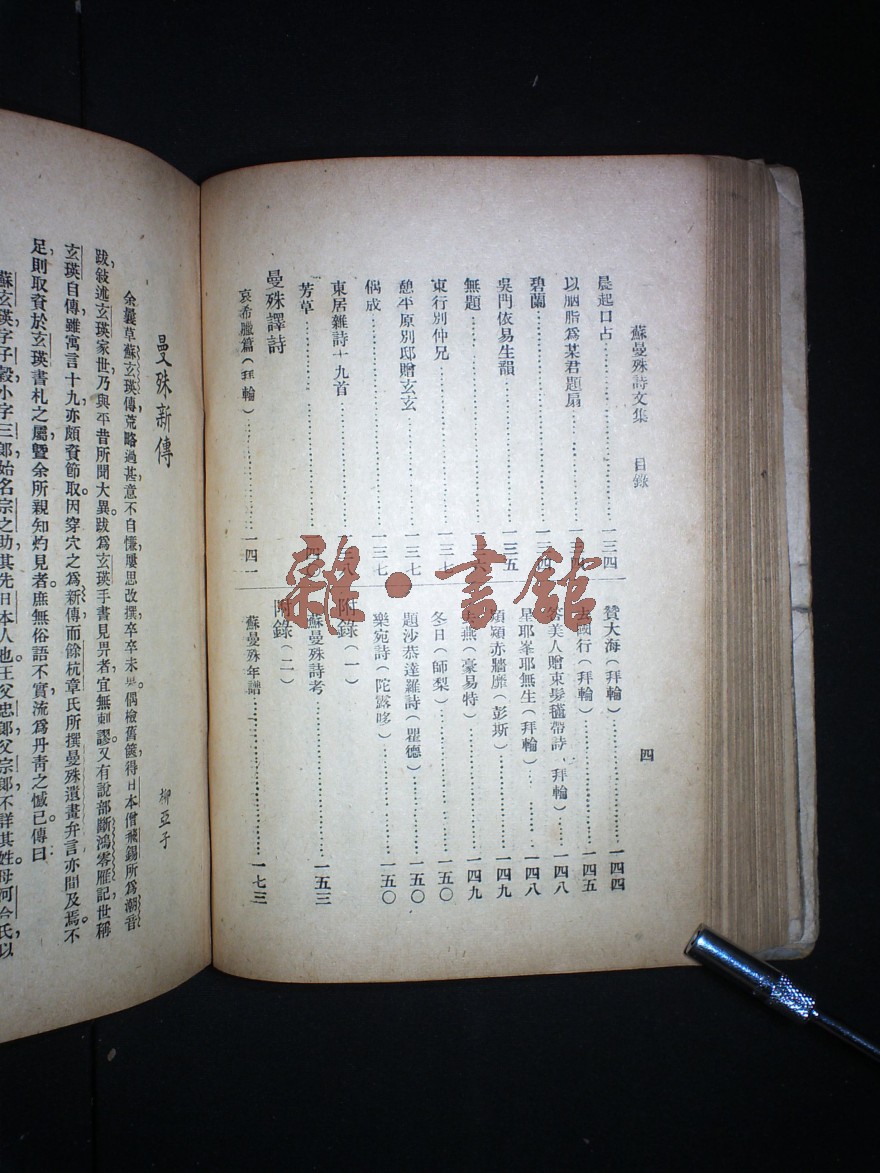 蘇曼殊詩文集 目錄
四
晨起口占……一三四
以胭脂爲某君題扇……一三四
碧蘭……一三四
吳門依易生韻……一三五
無題……一三六
東行別仲兄……一三七
憩平原別邸贈玄玄……一三七
偶成……一三七
東居雜詩十九首……一三八
芳草……一四〇
曼殊譯詩
哀希臘篇(拜輪)……一四一
贊大海(拜輪)……一四四
去國行(拜輪)……一四五
答美人贈束髮𣰆帶詩(拜輪)……一四八
星耶峯耶無生(拜輪)……一四八
熲熲赤牆靡(彭斯)……一四九
去燕(豪易特)……一四九
冬日(師梨)……一五〇
題沙恭達羅詩(瞿德)……一五〇
樂宛詩(陀露哆)……一五〇
附錄(一)
蘇曼殊詩考……一五三
附錄(二)
蘇曼殊年譜……一七三
曼殊新傳
柳亞子
余曩草蘇玄瑛傳,荒略過甚,意不自慊,屢思改撰,卒卒未果。偶檢舊篋,得日本僧飛錫所爲潮音
跋,敍述玄瑛家世,乃與平昔所聞大異。跋爲玄瑛手書見畀者,宜無剌謬。又有說部斷鴻零雁記,世稱
玄瑛自傳,雖寓言十九,亦頗資節取。因穿穴之爲新傳,而餘杭章氏所撰曼殊遺畫弁言,亦間及焉。不
足則取資於玄瑛書札之屬,暨余所親知灼見者。庶無俗語不實,流爲丹靑之憾已。傳曰
蘇玄瑛,字子穀,小字三郎,始名宗之助,其先日本人也。王父忠郎,父宗郎,不詳其姓。母河合氏,以
雜·書館